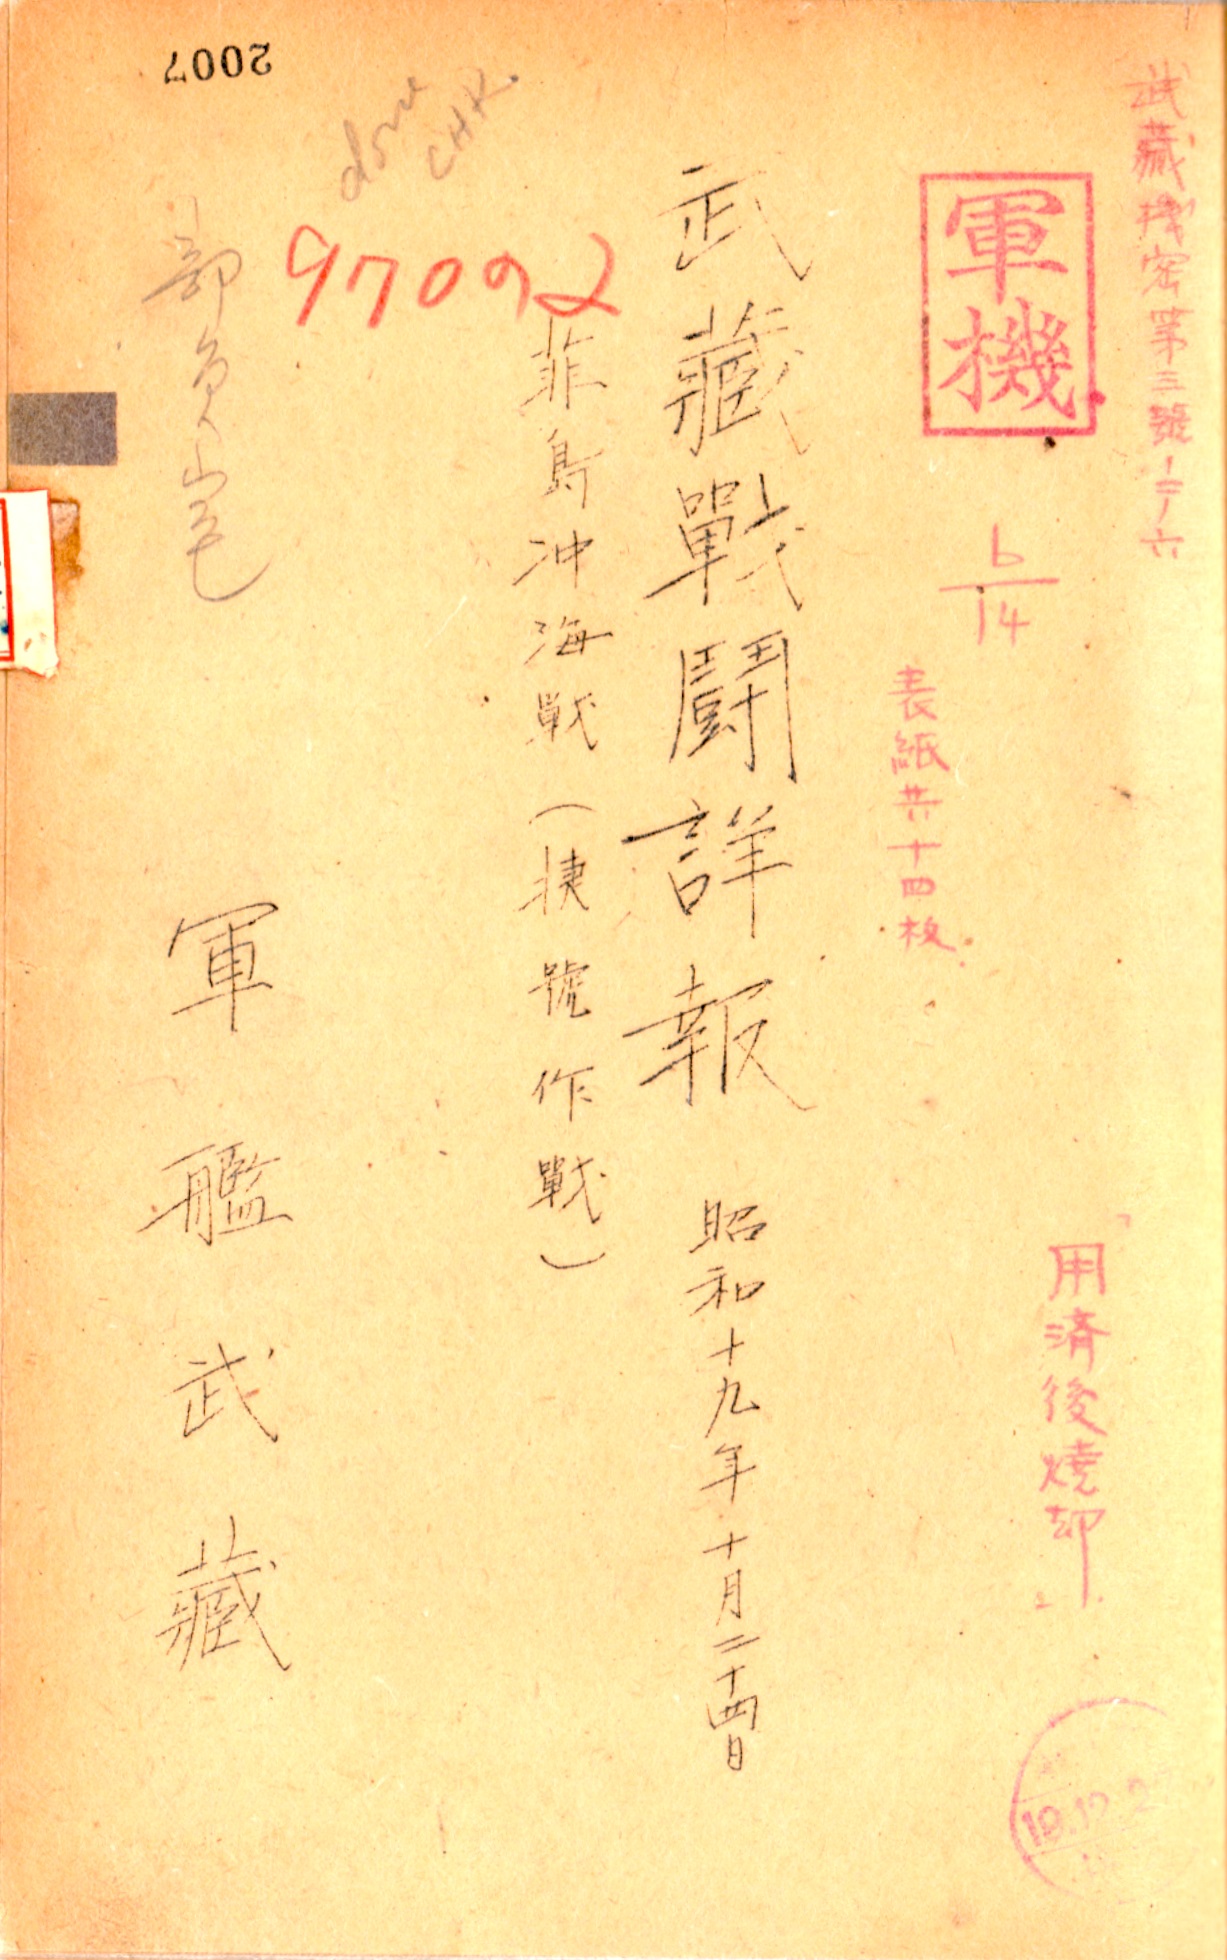 武藏機密第三號ノ二ノ六
軍機
6/14
表紙共十四枚
「用済後焼却」
19.12.2
武藏戰鬪詳報 昭和十九年十月二十四日
菲島沖海戰(捷號作戰)
軍艦武藏
97092
done
CHR.
部員
2007